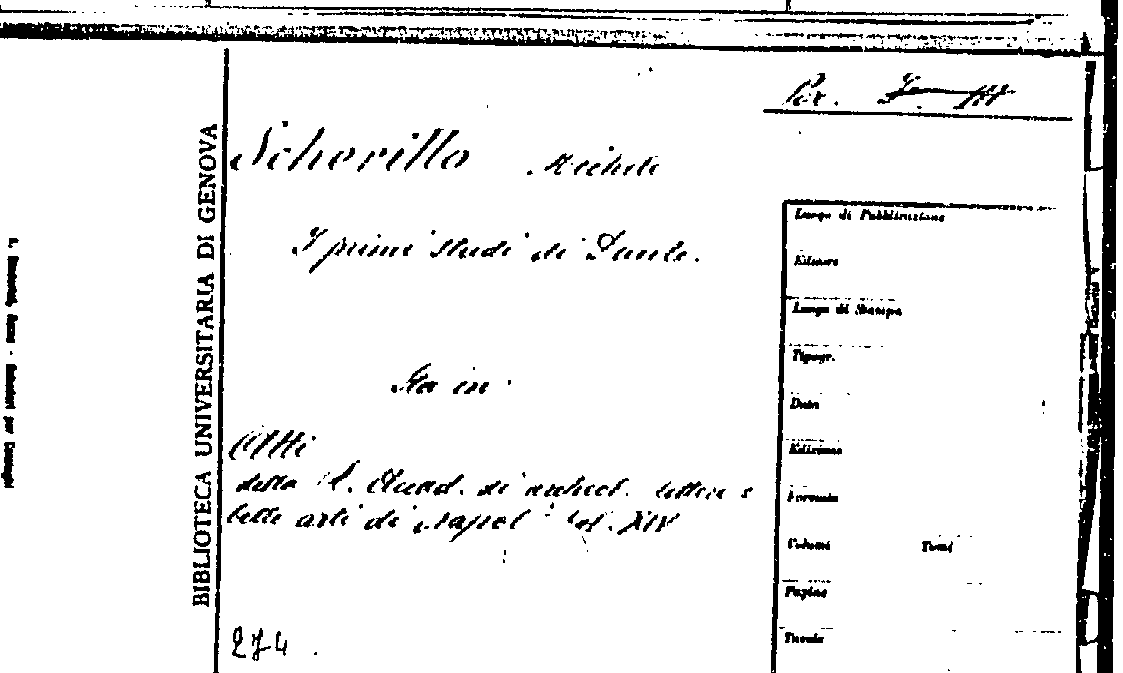 Per.
Scherillo Michele
I primi studi di Dante.
Sta in
Atti
della R. Accad. di archeol. lettere e
belle arti di Napoli vol. XIV
274.
BIBLIOTECA UNIVERSITARIA DI GENOVA
Luogo di Pubblicazione
Editore
Luogo di Stampa
Tipogr.
Data
Edizione
Formato
Volumi Tomi
Pagine
Tavole